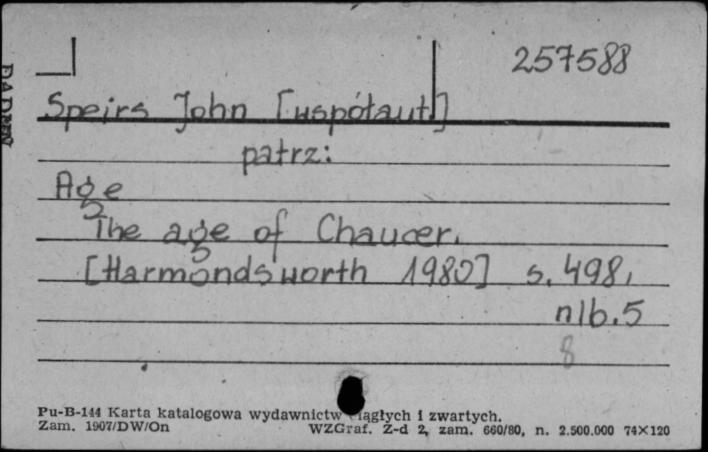 257588
Speirs John [współaut.]
patrz:
Age
The age of Chaucer.
[Harmondsworth 1980] s. 498,
nlb. 5
8
Pu-B-144 Karta katalogowa wydawnictw ciągłych i zwartych.
Zam. 1907/DW/On WZGraf. Z-d 2, zam. 660/80, n. 2.500.000 74×120